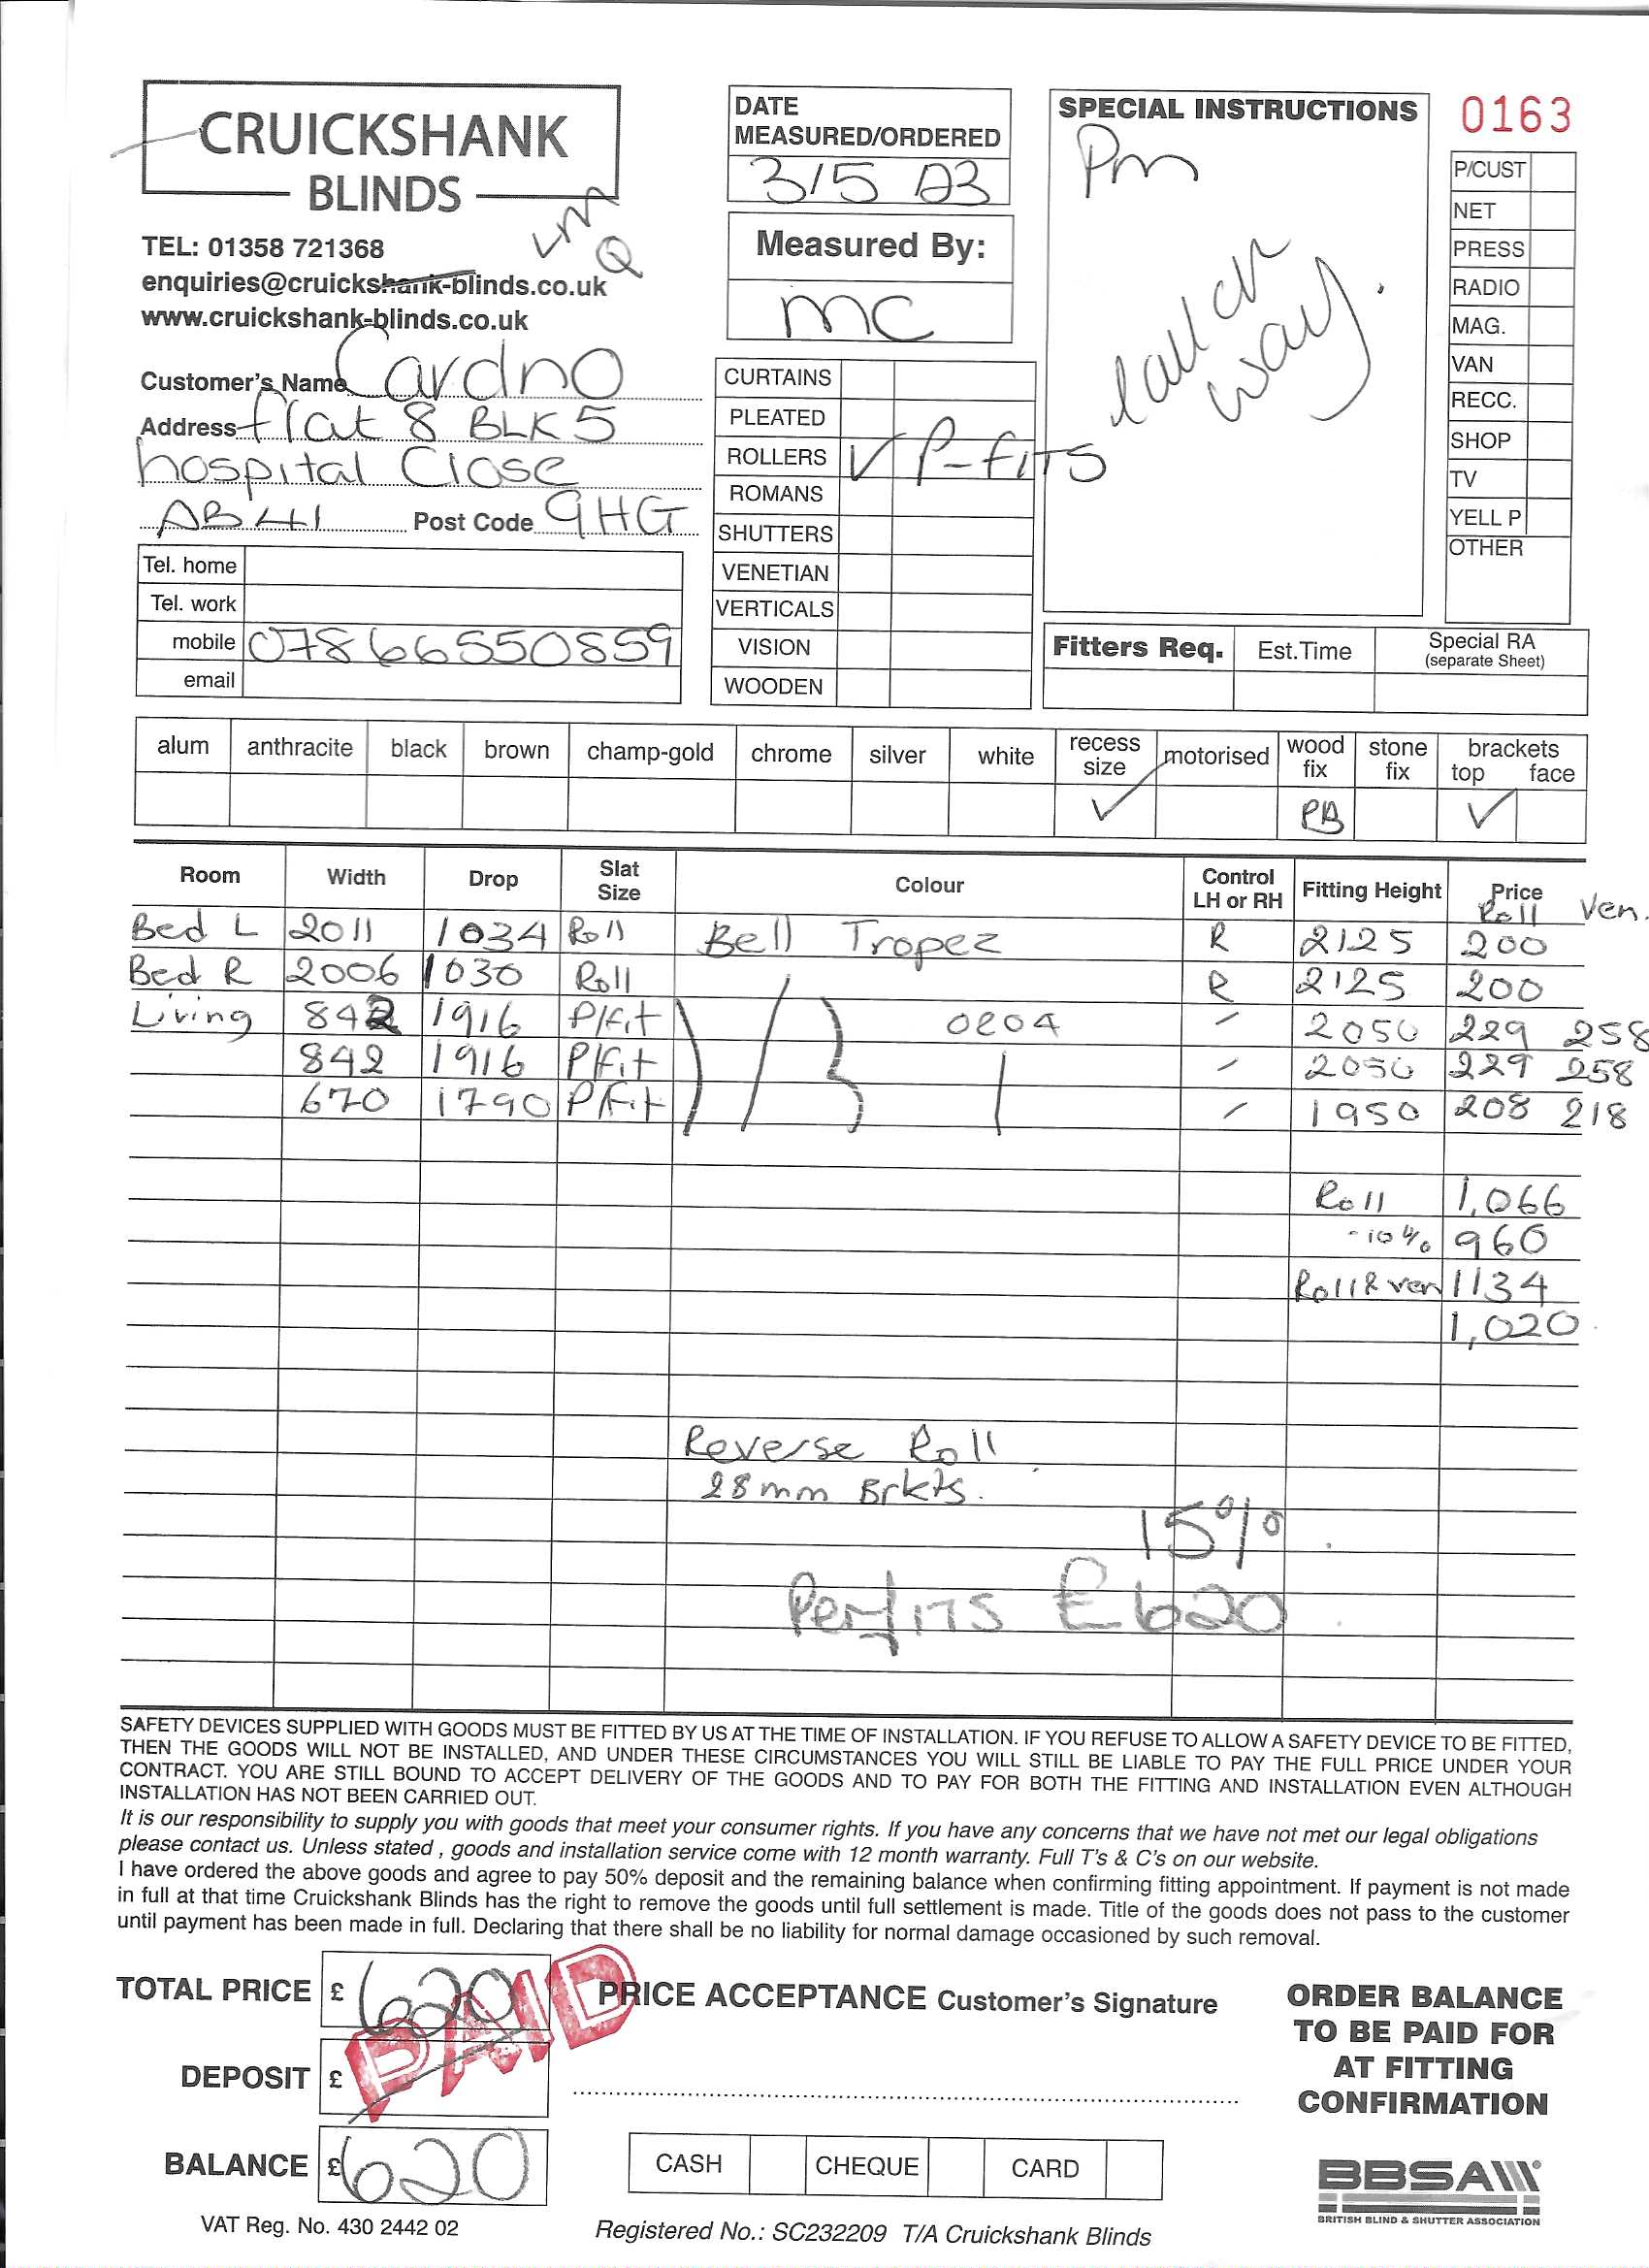 CRUICKSHANK
BLINDS
TEL: 01358 721368
enquiries@cruickshank-blinds.co.uk
www.cruickshank-blinds.co.uk
Customer's Name Cardno
Address flat 8 BLK 5
hospital Close
AB41 Post Code 9HG
Tel. home
Tel. work
mobile 07866550859
email
DATE
MEASURED/ORDERED
3/5 23
Measured By:
MC
CURTAINS
PLEATED
ROLLERS ✓ P-fits
ROMANS
SHUTTERS
VENETIAN
VERTICALS
VISION
WOODEN
SPECIAL INSTRUCTIONS
Pm
way.
0163
P/CUST
NET
PRESS
RADIO
MAG.
VAN
RECC.
SHOP
TV
YELL P
OTHER
Fitters Req. Est.Time Special RA
(separate Sheet)
alum anthracite black brown champ-gold chrome silver white recess size motorised wood fix stone fix brackets top face
✓ PB ✓
Room Width Drop Slat Size Colour Control LH or RH Fitting Height Price
Roll Ven.
Bed L 2011 1034 Roll Bell Tropez R 2125 200
Bed R 2006 1030 Roll R 2125 200
Living 842 1916 P/fit 0204 2050 229 258
842 1916 P/fit 2050 229 258
670 1790 P/Fit 1950 208 218
Roll 1,066
-10% 960
Roll & ven 1134
1,020
Reverse Roll
28mm Brkts.
15%
Perfits £620
SAFETY DEVICES SUPPLIED WITH GOODS MUST BE FITTED BY US AT THE TIME OF INSTALLATION. IF YOU REFUSE TO ALLOW A SAFETY DEVICE TO BE FITTED,
THEN THE GOODS WILL NOT BE INSTALLED, AND UNDER THESE CIRCUMSTANCES YOU WILL STILL BE LIABLE TO PAY THE FULL PRICE UNDER YOUR
CONTRACT. YOU ARE STILL BOUND TO ACCEPT DELIVERY OF THE GOODS AND TO PAY FOR BOTH THE FITTING AND INSTALLATION EVEN ALTHOUGH
INSTALLATION HAS NOT BEEN CARRIED OUT.
It is our responsibility to supply you with goods that meet your consumer rights. If you have any concerns that we have not met our legal obligations
please contact us. Unless stated , goods and installation service come with 12 month warranty. Full T's & C's on our website.
I have ordered the above goods and agree to pay 50% deposit and the remaining balance when confirming fitting appointment. If payment is not made
in full at that time Cruickshank Blinds has the right to remove the goods until full settlement is made. Title of the goods does not pass to the customer
until payment has been made in full. Declaring that there shall be no liability for normal damage occasioned by such removal.
TOTAL PRICE £ 620
PAID
DEPOSIT £
BALANCE £ 620
PRICE ACCEPTANCE Customer's Signature
CASH CHEQUE CARD
ORDER BALANCE
TO BE PAID FOR
AT FITTING
CONFIRMATION
BBSA
BRITISH BLIND & SHUTTER ASSOCIATION
VAT Reg. No. 430 2442 02
Registered No.: SC232209 T/A Cruickshank Blinds